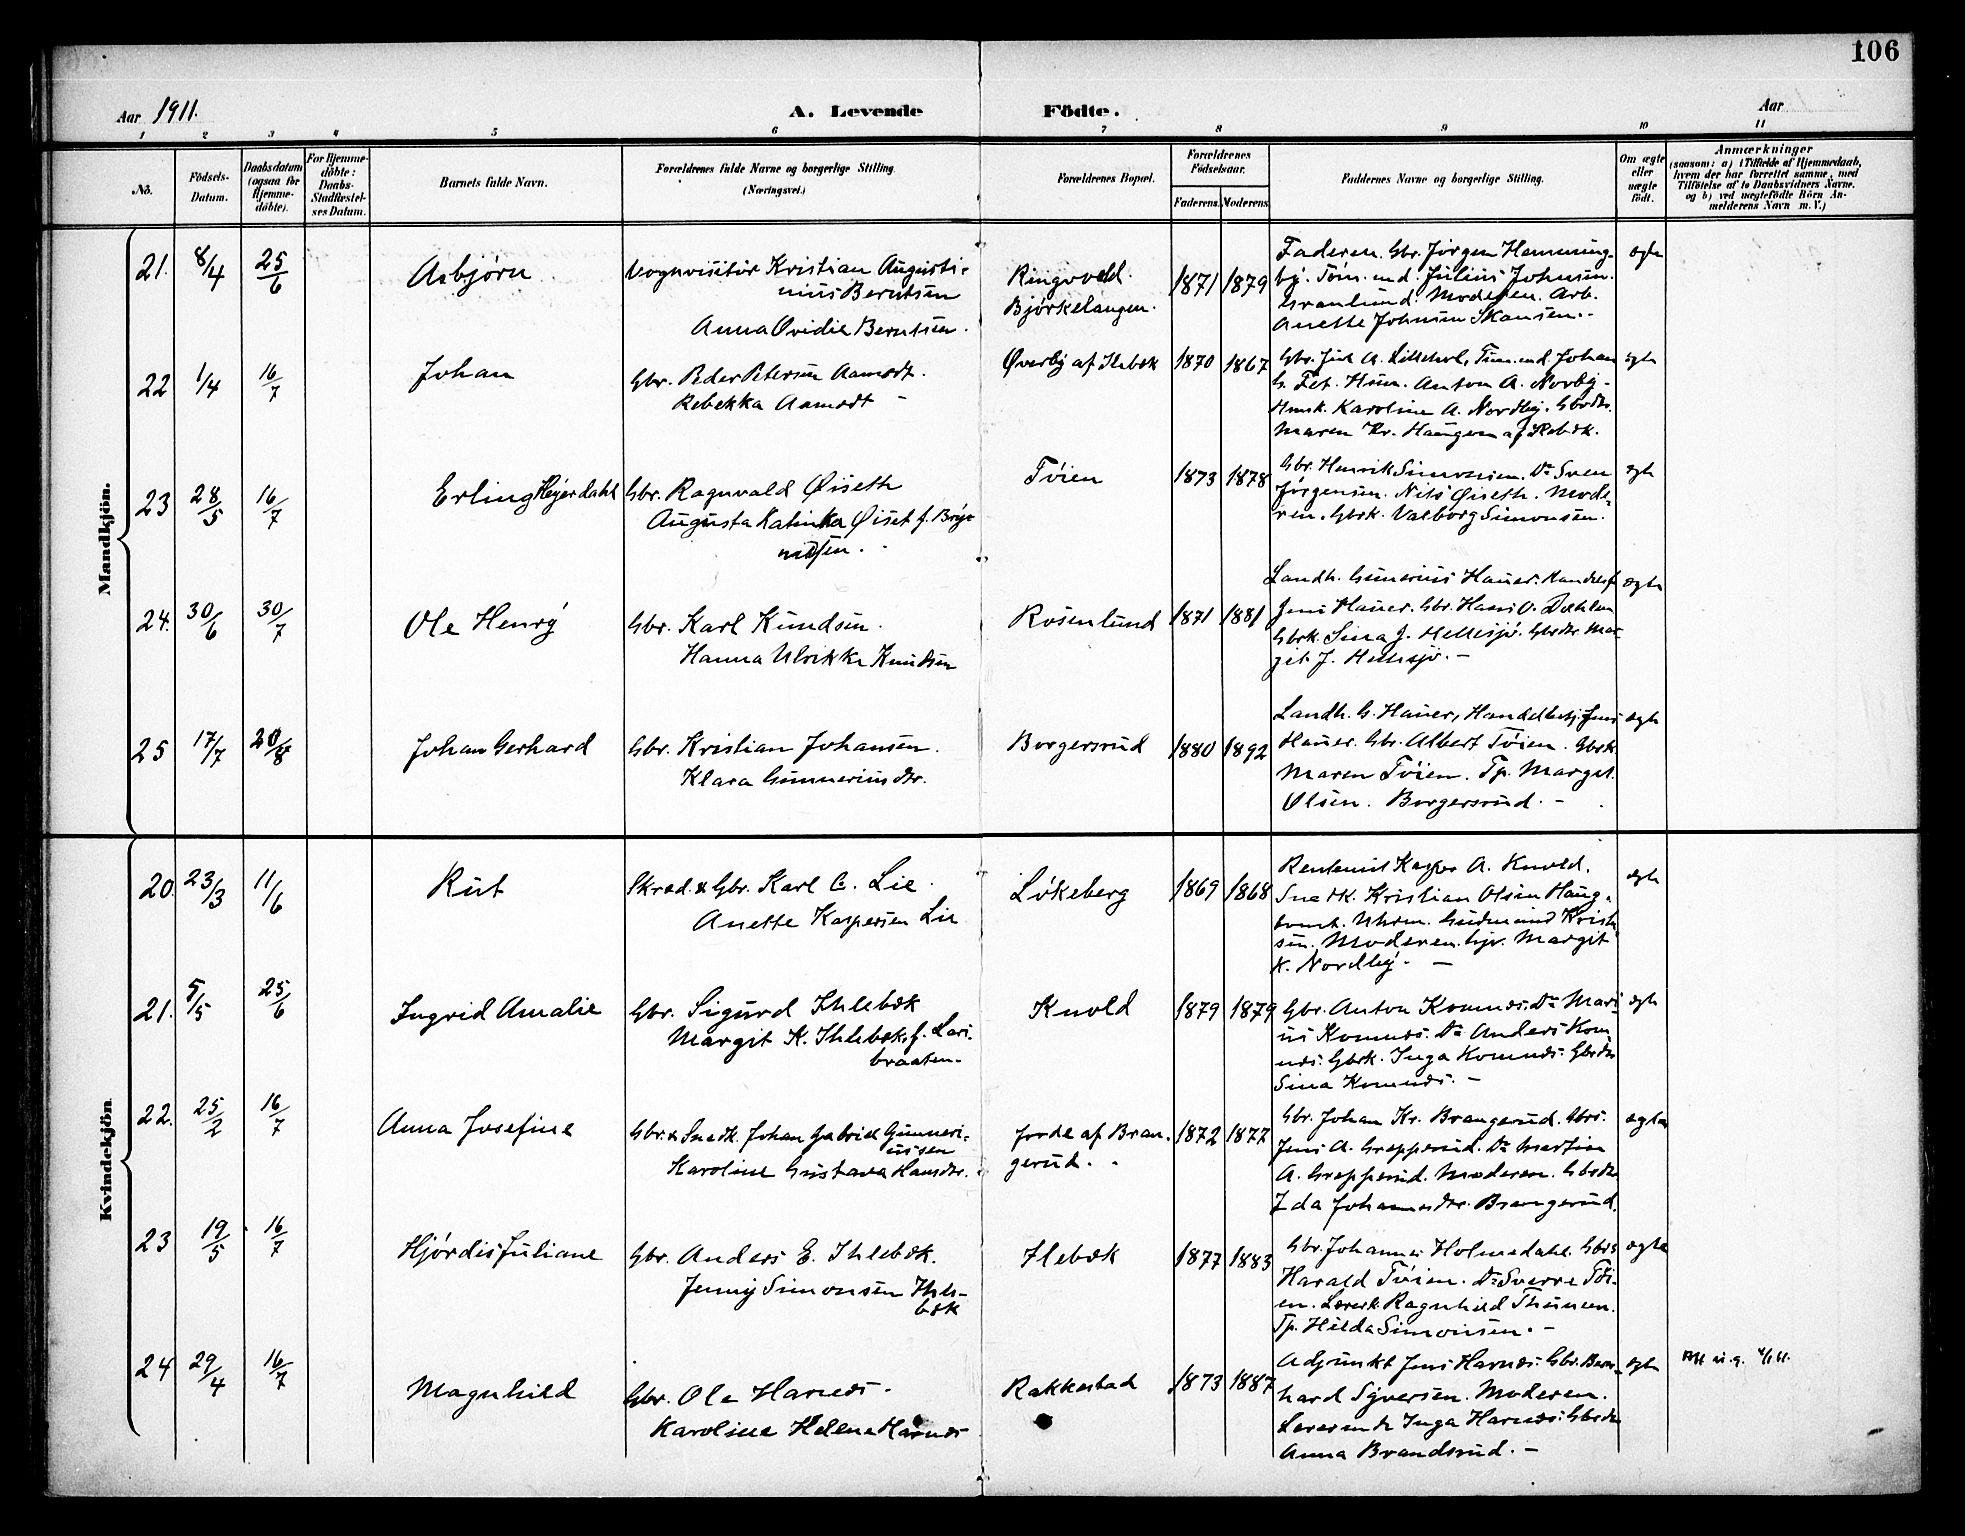 106
Aar 1911.
A. Levende Födte.
Aar
1 2 3 4 5 6 7 8 9 10 11
No.
Födsels-Datum.
Daabsdatum (ogsaa for Hjemme-döbte).
For Hjemme-döbte: Daabs-Stadfæstel-ses Datum.
Barnets fulde Navn.
Forældrenes fulde Navne og borgerlige Stilling
(Næringsvei.)
Forældrenes Bopæl.
Forældrenes Födselsaar.
Faderens. Moderens.
Faddernes Navne og borgerlige Stilling.
Om ægte eller uægte födt.
Anmærkninger
(saasom: a) i Tilfælde af Hjemmedaab,
hvem der har forrettet samme, med
Tilföielse af to Daabsvidners Navne,
og b) ved uægtefödte Börn An-
melderens Navn m. V.)
Mandkjön.
21. 8/4 25/6 Asbjørn
Vognvisitør Kristian Augusti-
nius Berntsen
Anna Ovidie Berntsen.
Ringvold
Bjørkelangen.
1871 1879
Faderen. Gbr. Jörgen Hemming-
by. Töm.md. Julius Johnsen
Granlund. Moderen. Arb.
Anette Johnsen Skansen.
ægte
22 1/4 16/7 Johan
Gbr. Peder Petersen Aamodt.
Rebekka Aamodt -
Øverby af Ihlebæk
1870 1867
Gbr. A. Töm.md. Johan
G. Fet. Husm. Anton A. Nordby-
Hmsk. Karoline A. Nordby. Gbrdtr.
Maren Kr. Haugen af
ægte
23 28/5 16/7 Erling Heyerdahl
Gbr. Ragnvald Øiseth
Augusta Katinka Øiset f. Bryn-
nidsen.
Töien
1873 1878
Gbr. Henrik Simonsen. Do Sven
Jörgensen. Nils Øiseth. Mode-
ren. Gbrk. Valborg Simonsen.
ægte
24. 30/6 30/7 Ole Henry
Gbr. Karl Knudsen.
Hanna Ulrikke Knudsen
Rosenlund
1871 1881
Landh. Gunerius Hauer. Handelsf.
Jens Hauer. Gbr. Hans O. Dæhlen
Gbrk. Sina J. Hellesjö. Gbrdtr. Mar-
git J. Hellesjö. -
ægte
25 17/7 20/8 Johan Gerhard
Gbr. Kristian Johansen.
Klara Gunneriusdtr.
Borgersrud
1880 1892
Landh. G. Hauer, Handelbetj. Jens
Hauer. Gbr. Albert Töien. Gbrk.
Maren Töien. Tp. Margit
Olsen. Borgersrud. -
ægte
Kvindekjön
20. 23/3 11/6 Rut
Skræd. & Gbr. Karl C. Lie.
Anette Kaspersen Lie
Lökeberg
1869 1868
Rentenist Kasper A. Knold.
Snedk. Kristian Olsen Haug-
tomt. Uhrm. Gudmund Krist-
sen. Moderen. Margit
K. Nordby. -
ægte
21. 5/5 25/6 Ingrid Amalie
Gbr. Sigurd Ihlebæk
Margit K. Ihlebæk, f. Lari-
braaten.
Knold
1879 1879
Gbr. Anton Komnæs. Do Mari-
us Komnæs. Do Anders Kom
næs. Gbrk. Inga Komnæs. Gbrdtr
Sina Komnæs. -
ægte
22. 25/2 16/7 Anna Josefine
Gbr. & Snedk. Johan Gabriel Gunneri-
ussen
Karoline Gustava Hansdtr.
Jorde af Bran-
gerud.
1872 1877
Gbr. Johan Kr. Brangerud. Gbrs.
Jens A. Grepperud. Do Martin
A. Grepperud. Moderen. Gbrdtr
Ida Johannesdtr. Brangerud.
ægte
23 19/5 16/7 Hjördis Juliane
Gbr. Anders E. Ihlebæk.
Jenny Simonsen Ihle-
bæk
Ilebæk
1877 1883
Gbr. Johannes Holmedahl. Gbrs
Harald Töien. Do Sverre Töi-
en. Lærerk. Ragnhild Thunem.
Tp. Hilda Simonsen. -
ægte
24 29/4 16/7 Magnhild
Gbr. Ole Harnæs.
Karoline Helene Harnæs
Rakkestad
1873 1887
Adjunkt Jens Harnæs. Gbr. Bern-
hard Syversen. Moderen.
Lærerinde Inga Harnæs. Gbrdtr
Anna Brandsrud. -
ægte